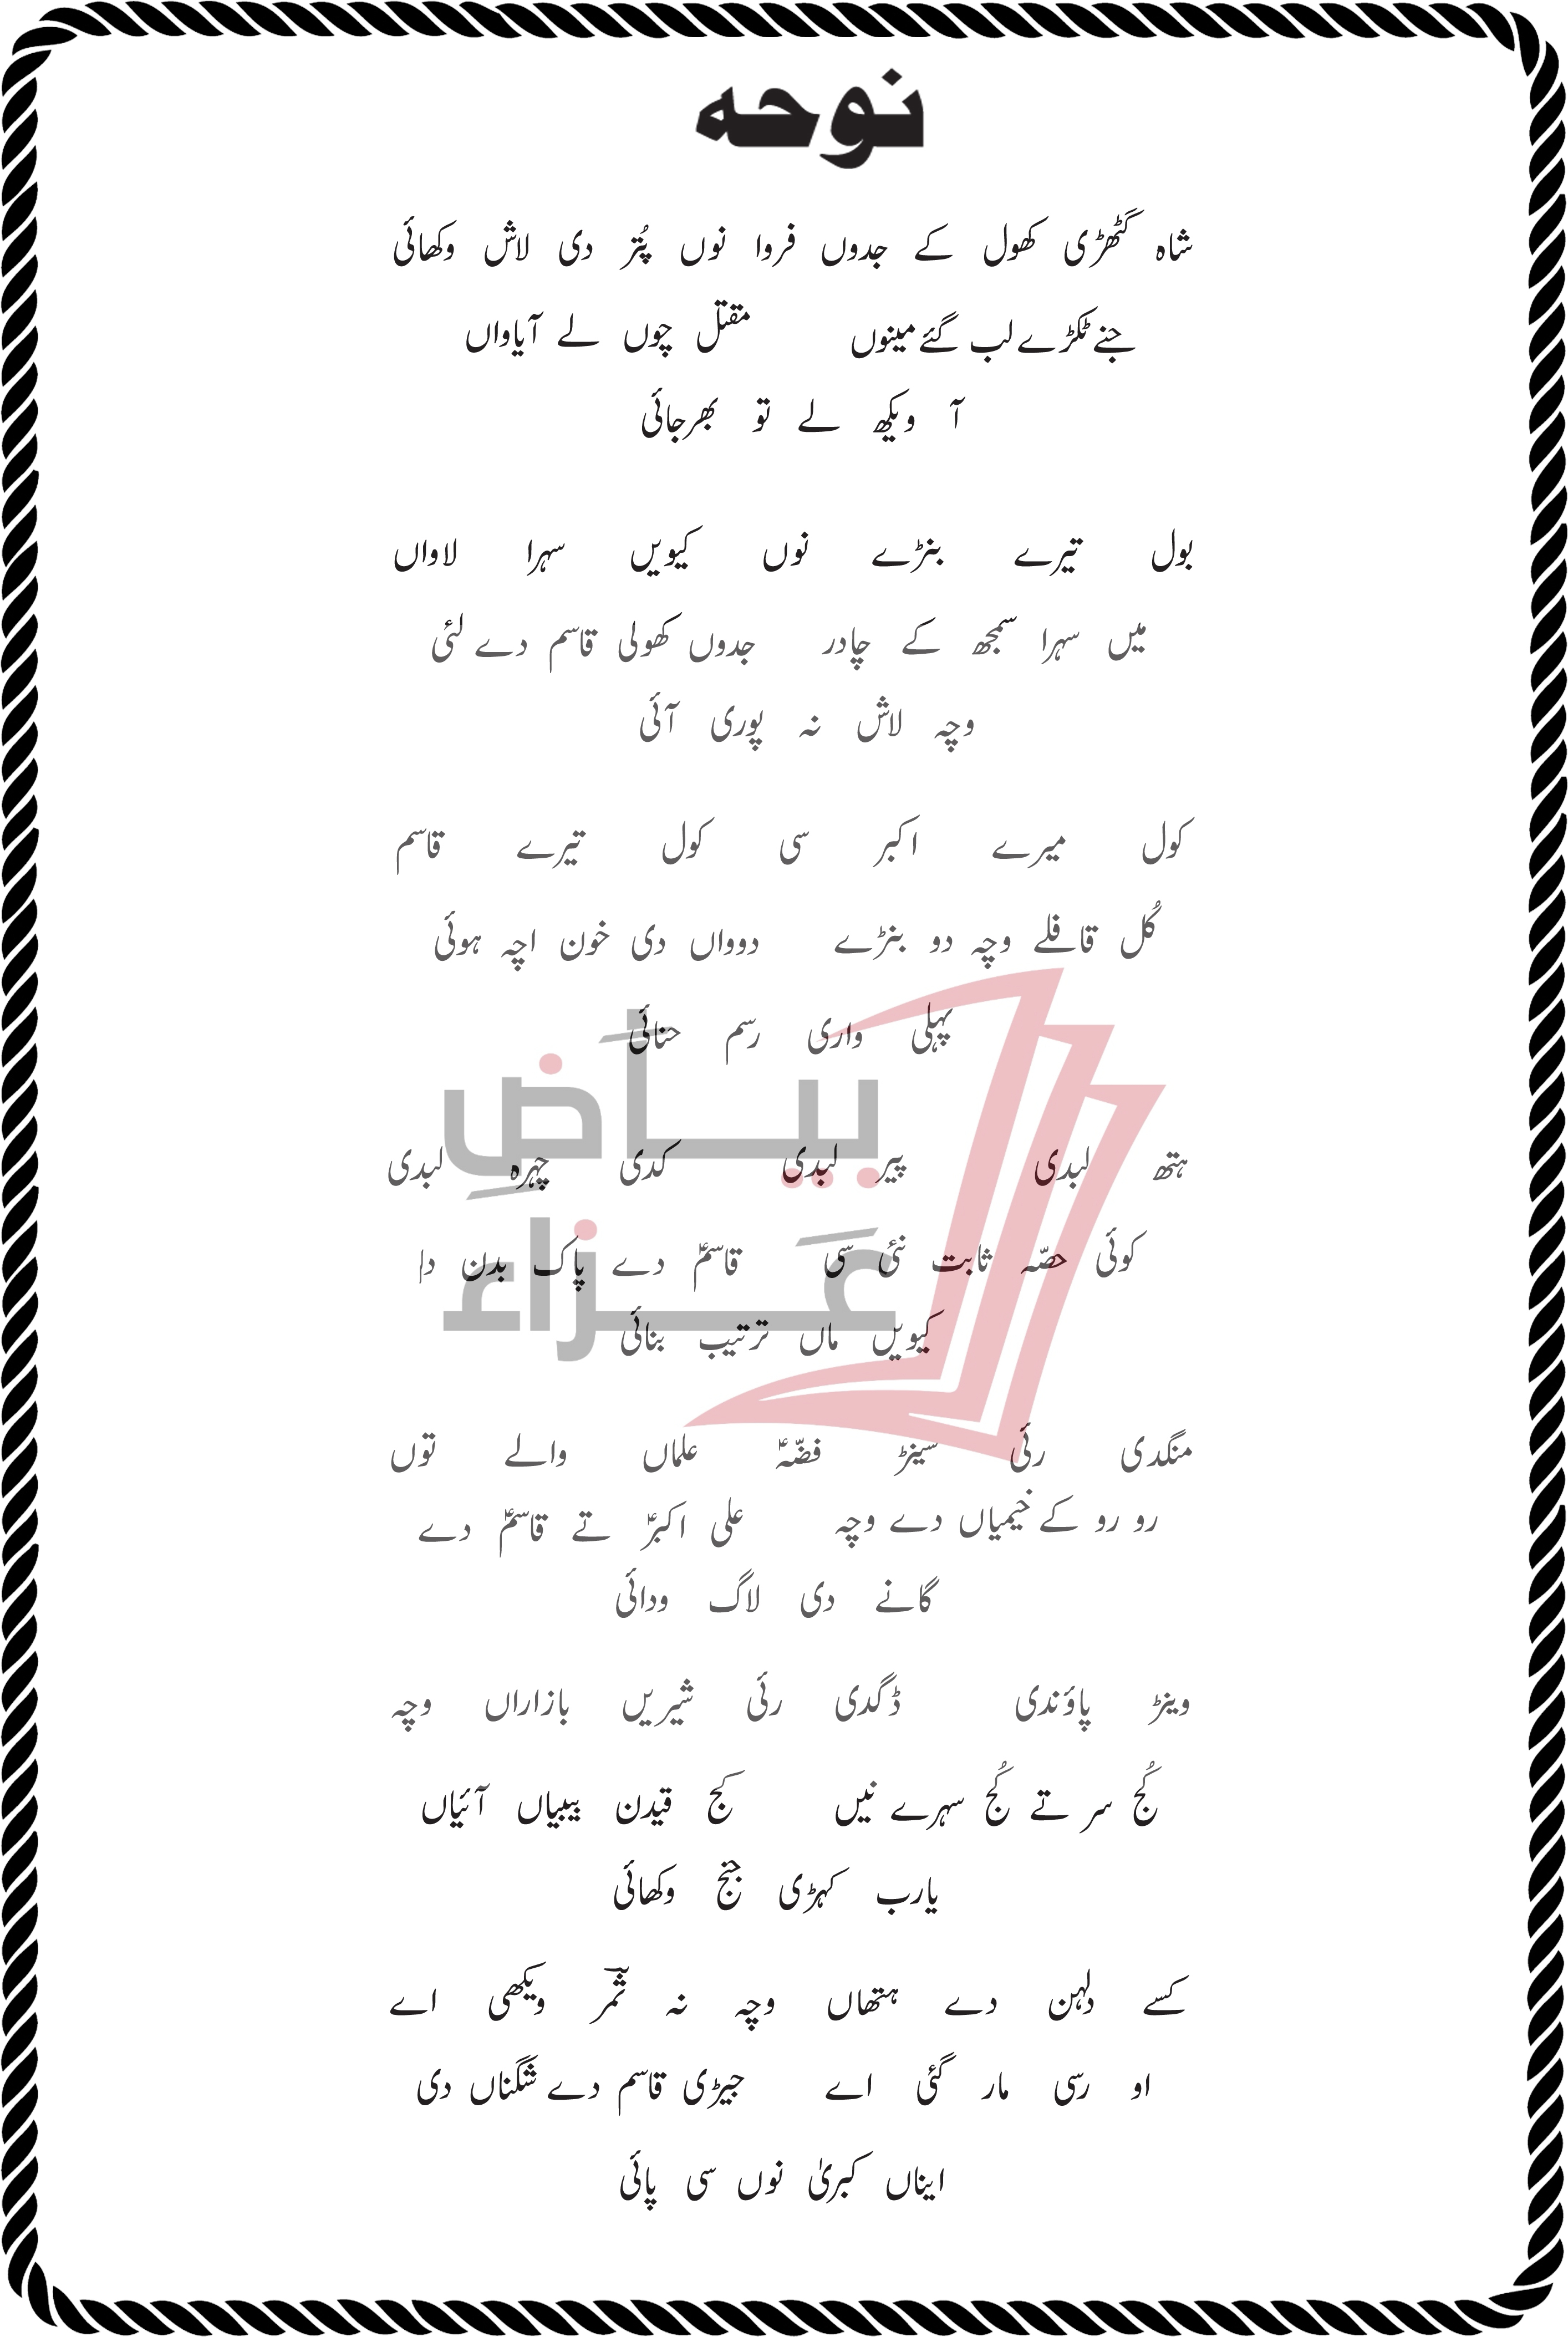 نوحہ
شاہ گٹھڑی کھول کے جدوں فروا نوں پُتر دی لاش وکھائی
جنے ٹکڑے لب گئے مینوں مقتل چوں لے آیاواں
آ ویکھ لے تو بھرجائی
بول تیرے بنڑے نوں کیویں سہرا لاواں
میں سہرا سمجھ کے چادر جدوں کھولی قاسم دے لئی
وچہ لاش نہ پوری آئی
کول میرے اکبر سی کول تیرے قاسم
کُل قافلے وچہ دو بنڑے دوواں دی خون اچہ ہوئی
پہلی واری رسم حنائی
ہتھ لبدی پیر لبدی کدی چہرہ لبدی
کوئی حصّہ ثابت نئی سی قاسمؑ دے پاک بدن دا
کیویں ماں ترتیب بنائی
منگدی رئی سینڑ فضّہؑ علماں والے توں
رو رو کے خیمیاں دے وچہ علی اکبرؑ تے قاسمؑ دے
گانے دی لاگ ودائی
وینڑ پاؤندی ڈگدی رئی شیریں بازاراں وچہ
کُج سر تے کُج سہرے نیں کج قیدن بیبیاں آئیاں
یارب کہڑی جنج وکھائی
کسے دلہن دے ہتھاں وچہ نہ ثمر ویکھی اے
او رسی مار گئی اے جیڑی قاسم دے شگناں دی
ایناں کبریٰ نوں سی پائی
بیاَضِ
عَزاء